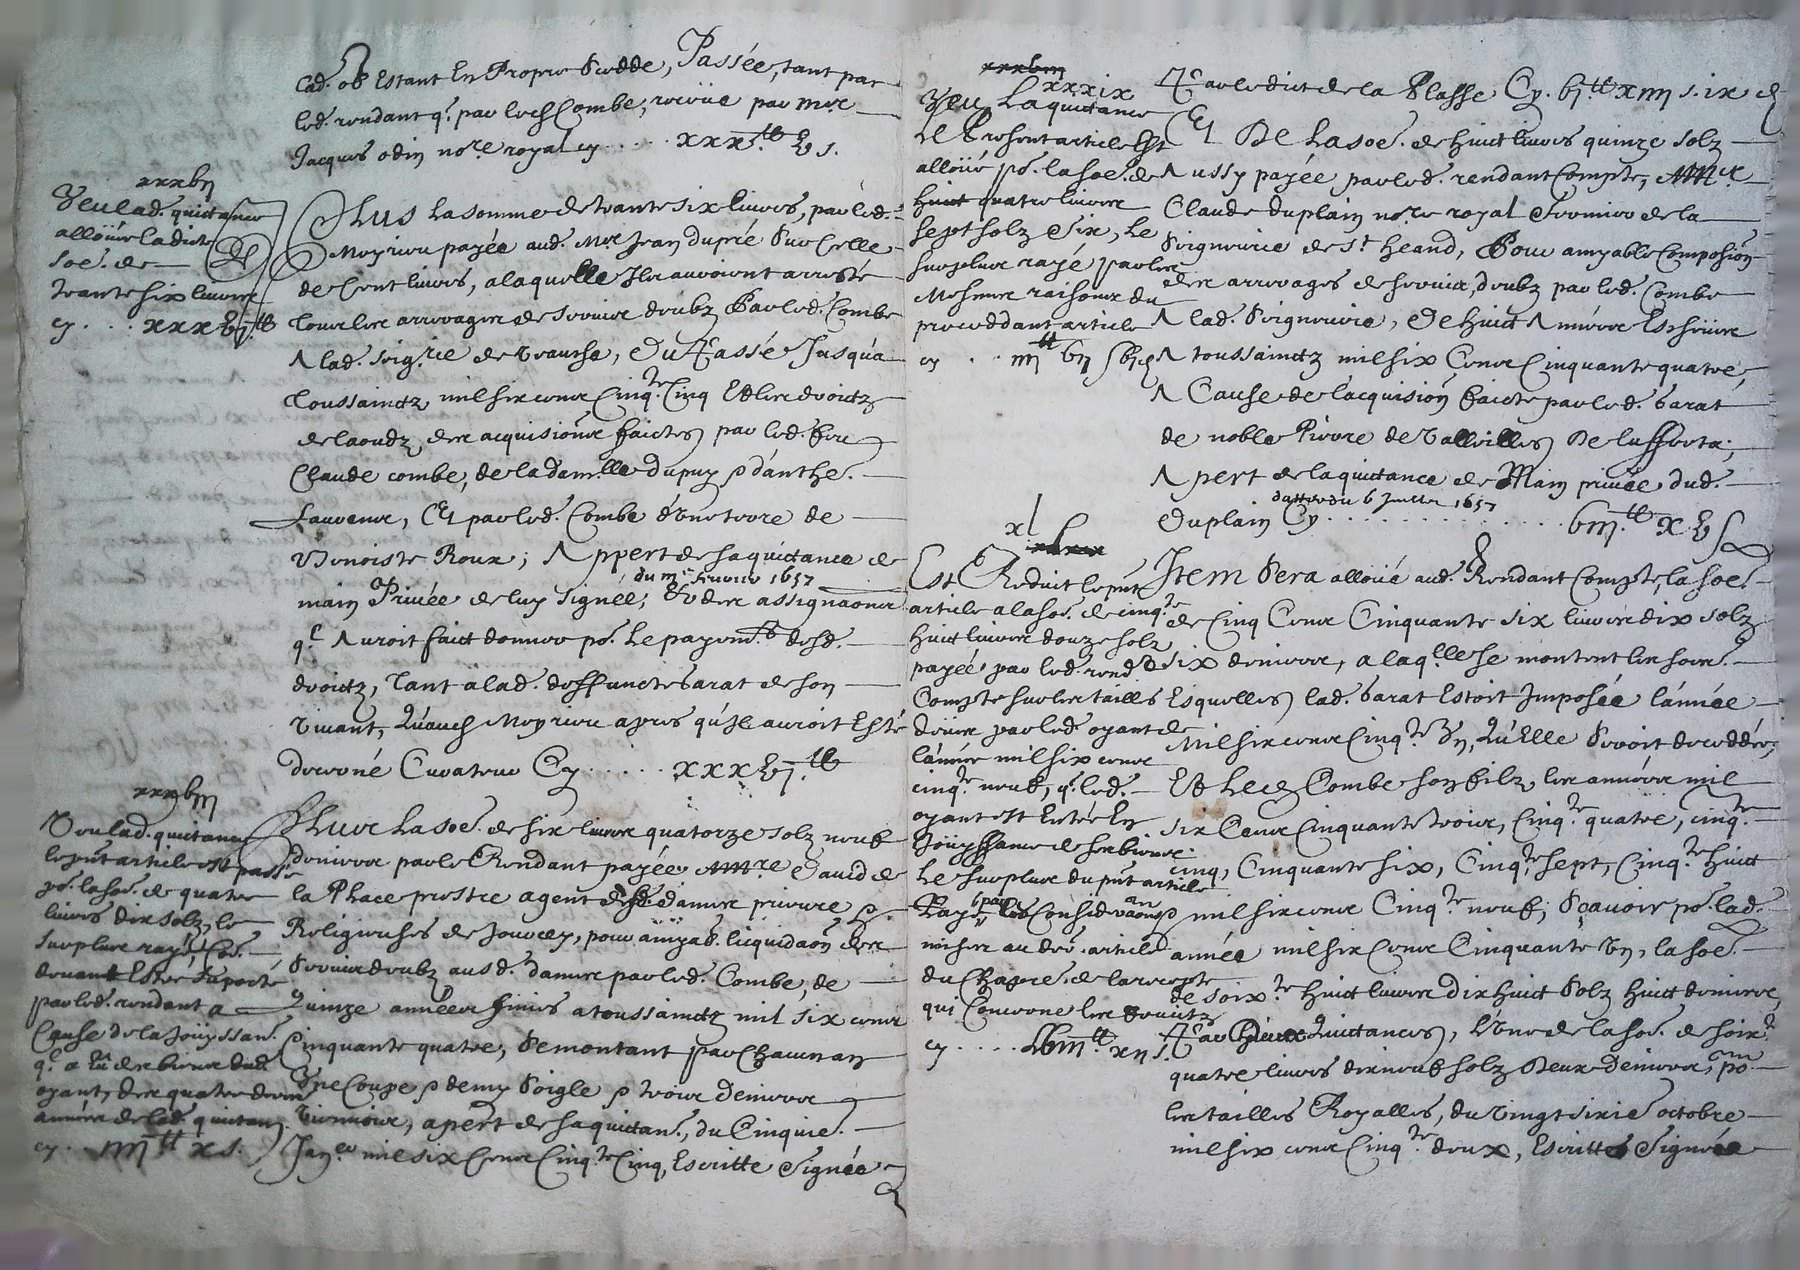 Lad. ob Estant En Propre Cedde, Passée, tant par
led. rendant q. par led. Combe, receüe par me
Jacques odin nore. royal cy ..... xxxj.tt v s.
xxxvij
Veu lad. quittance
alloüée la dicte
soe. de
trante six livres
cy ... xxxvj.tt
Plus la somme de trante six livres, par led.
Meyrieu payée aud. Mre Jean dupré Sur Celle
de Cent livres, a laquelle Ils auroient arresté
Tous les arrerages de servis deubz Par led. Combe
A lad. seigrie de, Du Passé Jusqua
Toussainctz mil six cens Cinqte. Cinq Et les droictz
de laoudz des acquisions faictes par led. feu
Claude combe, de la damlle. dupuy
Et par led. Combe d'une terre de
Benoiste Roux; Appert de sa quittance de
du mj fevrier 1657
main Privée de luy signée, & des assignaons
q.l Auroit faict donner po. le payemt. desd.
droictz, Tant a lad. deffuncte barat de son
vivant, Qu'aud. Meyrieu apres qu'Il auroit Esté
decerné Curateur Cy ..... xxxvj.tt
xxxviij
Veu lad. quittance
le pnt article est passé
po. la soe. de quatre
livres dix solz, le
surplus rayé,
devant Estre suporté
par led. rendant a
Cause de la Joüyssan.
q.l a eu des biens dud.
oyant, des quatre dern.
années de lad. quittan.
cy .. iiij tt x s.
Plus la soe. de six livres quatorze solz neuf
deniers par le Rendant payée a Mre David de
la Place prestre agent desd. dames prieure &
Religieuses de Jourcey, pour amyab. liquidaon des
Servis deubz ausd. dames par led. Combe, de
Quinze années finies a toussainctz mil six cens
Cinquante quatre, Se montant par Chacun an
Une Coupe & demy Seigle & trois Deniers
Viennois, apert de sa quittan., du Cinquie.
Janer. mil six Cens Cinqte. Cinq, Escritte Signée
xxxvij
xxxix
Veu La quittance
Le Present article Est
alloüé po. la soe. de
huict quatre livres
sept solz Six, Le
surplus rayé par les
Mesmes raisons du
preceddant article
cy .. iiij tt vij s vj d
Par le dict de la Plasse Cy. vj.tt xiiij s. ix d
Et De La soe. de huict livres quinze solz
Aussy payée par led. rendant Compte, a Mre
Claude duplain nore. royal Fermier de la
Seigneurie de St. heand, Pour amyable Composion
des arrerages de servis, deubz par led. Combe
A lad. Seigneurie, De huict Années Escheües
A toussainctz mil six Cens Cinquante quatre,
A Cause de l'acquision faicte par led. barat
de noble Pierre de
Apert de la quittance de Main privée dud.
dattée du 6 Juillet 1657
Duplain Cy .............. viij.tt xv s
xl
xxxix
Est Reduit le pnt
article a la soe. de cinqte
huict livres douze solz
payée par led. rend
Compte sur les tailles
deües par led. oyant de
l'année mil six cens
cinqte. neuf, q. led.
oyant est Entré En
Joüyssance de ses biens
Le surplus du pnt article
Rayé par les Consideraons
mises au der. article
du Chapre. de la recepte
qui Concerne les fruictz
cy .... Lviij.tt xij s.
Item Sera alloüé aud. Rendant Compte, la soe.
de Cinq Cens Cinquante six livres dix solz
six deniers, a laqlle se montent les soes.
Esquelles lad. barat Estoit Imposée l'année
Mil six cens Cinqte Un, Qu'Elle Seroit deceddée,
Et led. Combe son filz, les années mil
six Cens Cinquante trois, Cinqte. quatre, cinqte.
cinq, Cinquante six, Cinqte. sept, Cinqte. huict
& mil six cens Cinqte. neuf, Sçavoir po. lad.
année mil six Cens Cinquante Un, la soe.
de soixte. huict livres dix huict Solz huict deniers,
Par Deux Quittances, L'Une de la soe. de soixte.
quatre livres dix neuf solz Deux Deniers, po.
les tailles Royalles, du vingt sixie. octobre
mil six cens Cinqte. deux, Escritte Signée